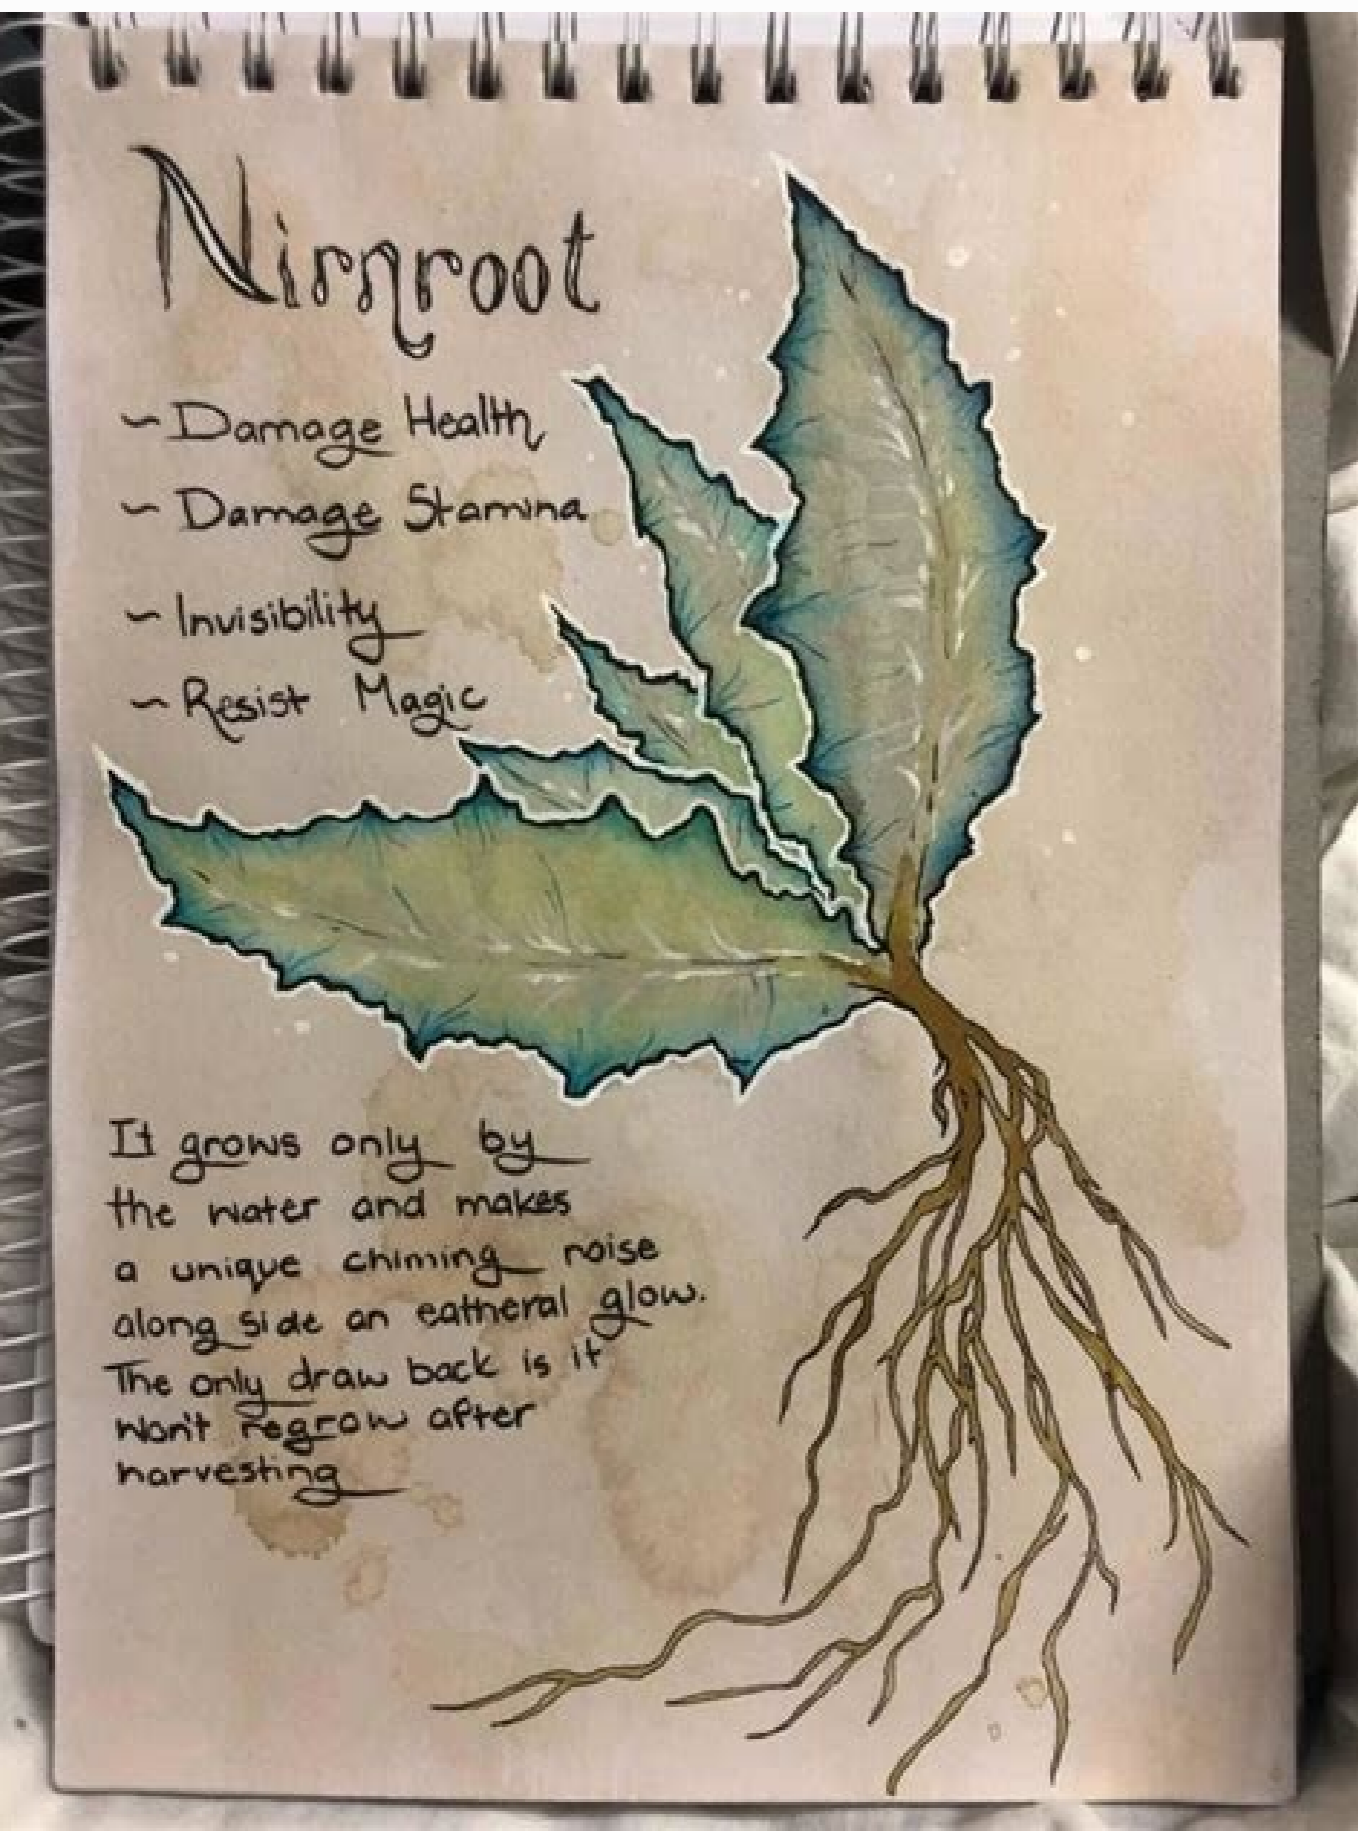 Nirnroot
~ Damage Health
~ Damage Stamina
~ Invisibility
~ Resist Magic
It grows only by
the water and makes
a unique chiming noise
along side an eatheral glow.
The only draw back is it
won't regrow after
harvesting